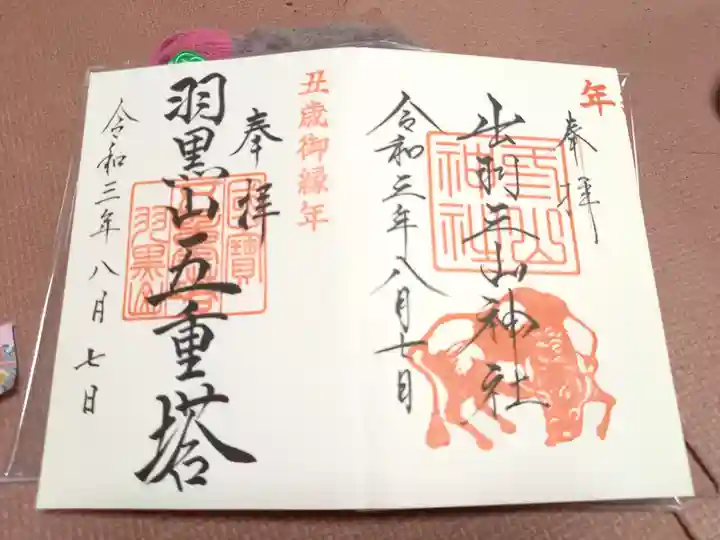 年
奉拝
出羽三山神社
令和三年八月七日
丑歳御縁年
奉拝
羽黒山五重塔
国寶
羽黒山
令和三年八月七日